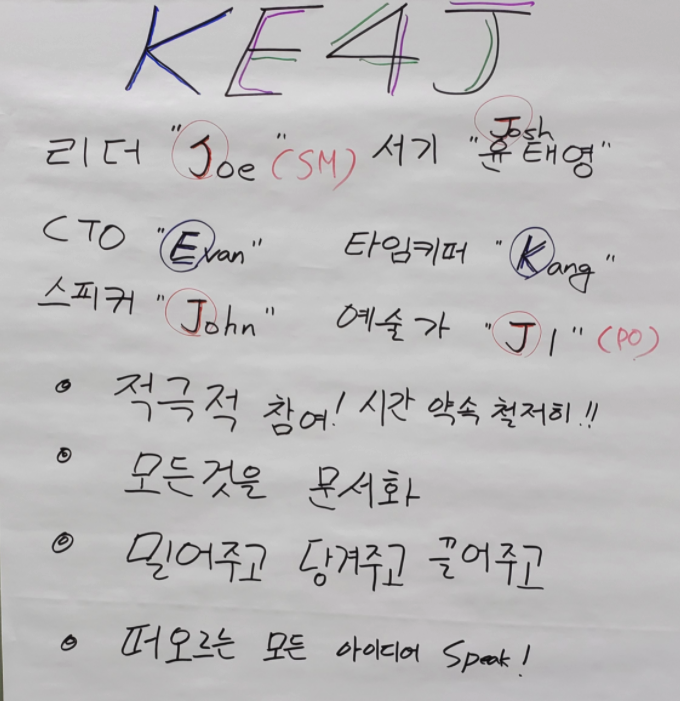 KE4J
리더 "Joe" (SM) 서기 "Josh 윤태영"
CTO "Evan" 타임키퍼 "Kang"
스피커 "John" 예술가 "JI" (PO)
적극적 참여! 시간 약속 철저히!!
모든것을 문서화
밀어주고 당겨주고 끌어주고
떠오르는 모든 아이디어 Speak!